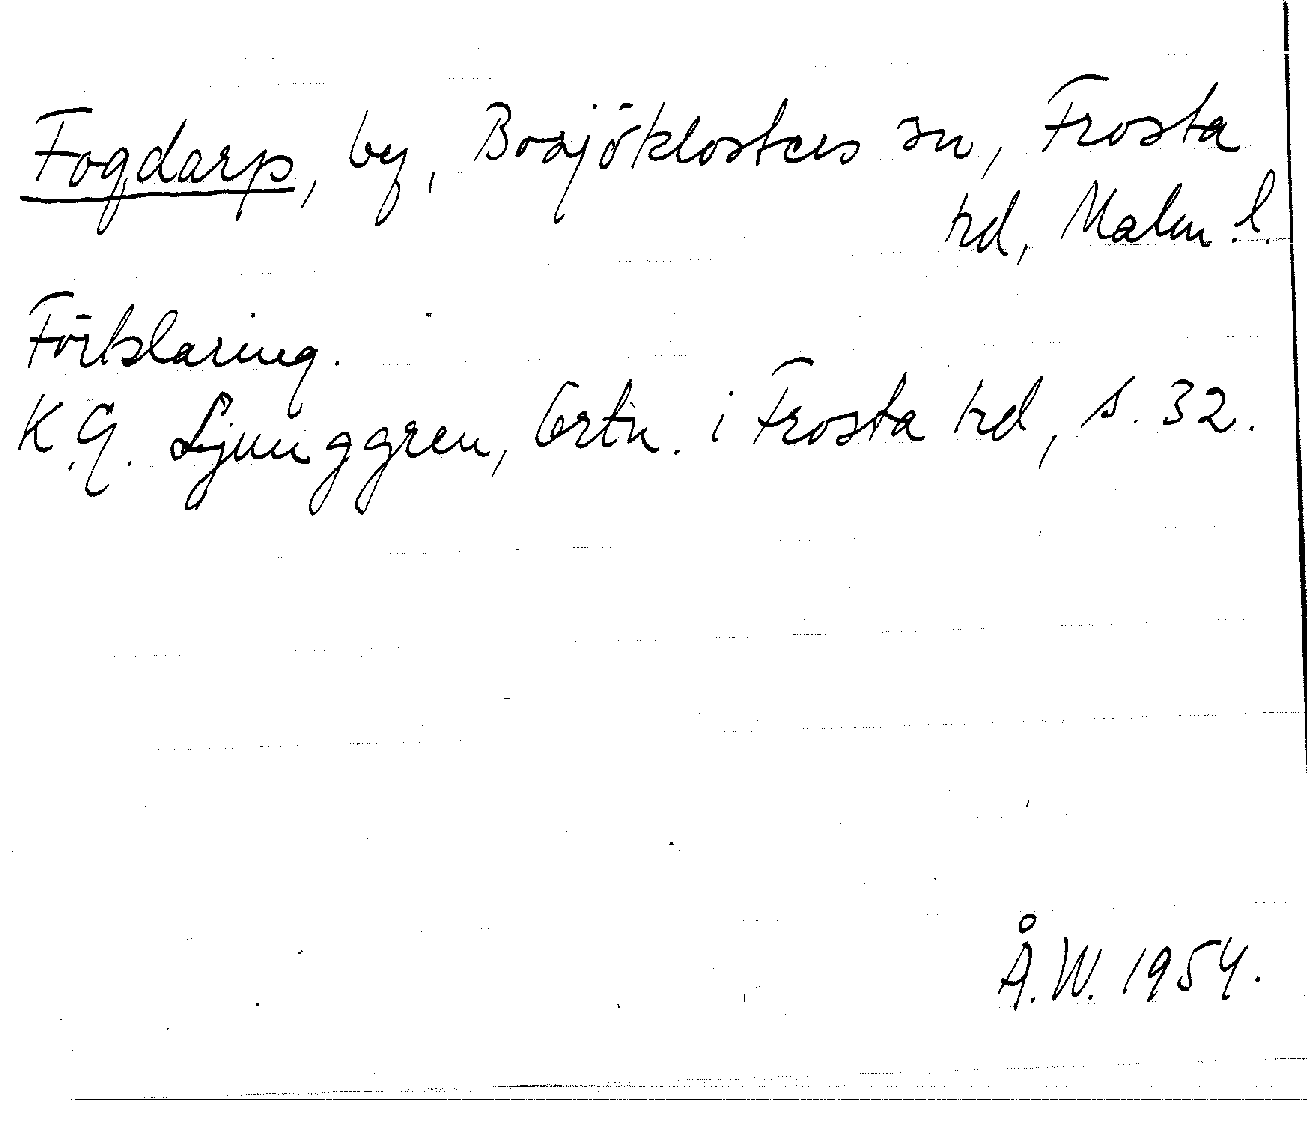 Fogdarp, by, Bosjöklosters sn, Frosta
hd, Malm. l.
Förklaring.
K.G. Ljunggren, Ortn. i Frosta hd, s. 32.
Å.W. 1954.